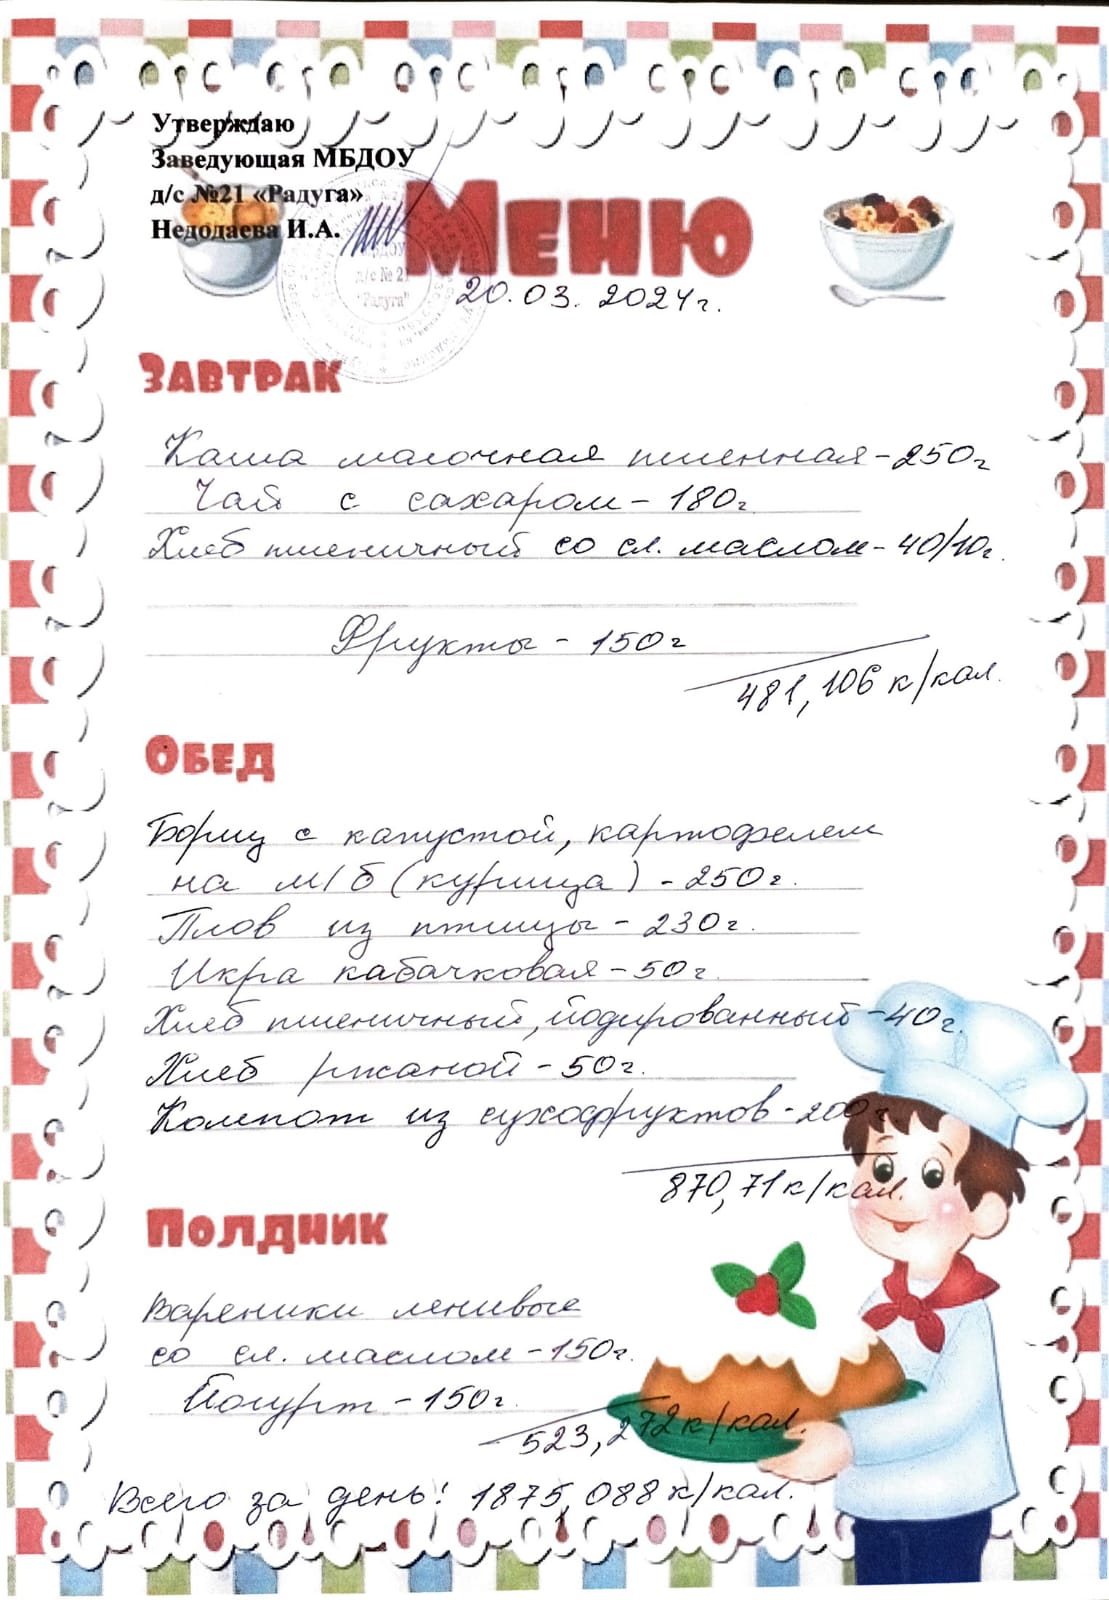 Утверждаю
Заведующая МБДОУ
д/с №21 «Радуга»
Недодаева И.А.
д/с № 21
"Радуга"
Меню
20.03.2024г.
Завтрак
Каша молочная пшенная - 250г
Чай с сахаром - 180г.
Хлеб пшеничный со сл. маслом - 40/10г.
Фрукты - 150г
481,106 к/кал.
Обед
Борщ с капустой, картофелем
на м/б (курица) - 250г.
Плов из птицы - 230г.
Икра кабачковая - 50г.
Хлеб пшеничный, йодированный - 40г.
Хлеб ржаной - 50г.
Компот из сухофруктов - 200г.
870,71 к/кал.
Полдник
Вареники ленивые
со сл. маслом - 150г.
Йогурт - 150г.
523,272 к/кал.
Всего за день: 1875,088 к/кал.